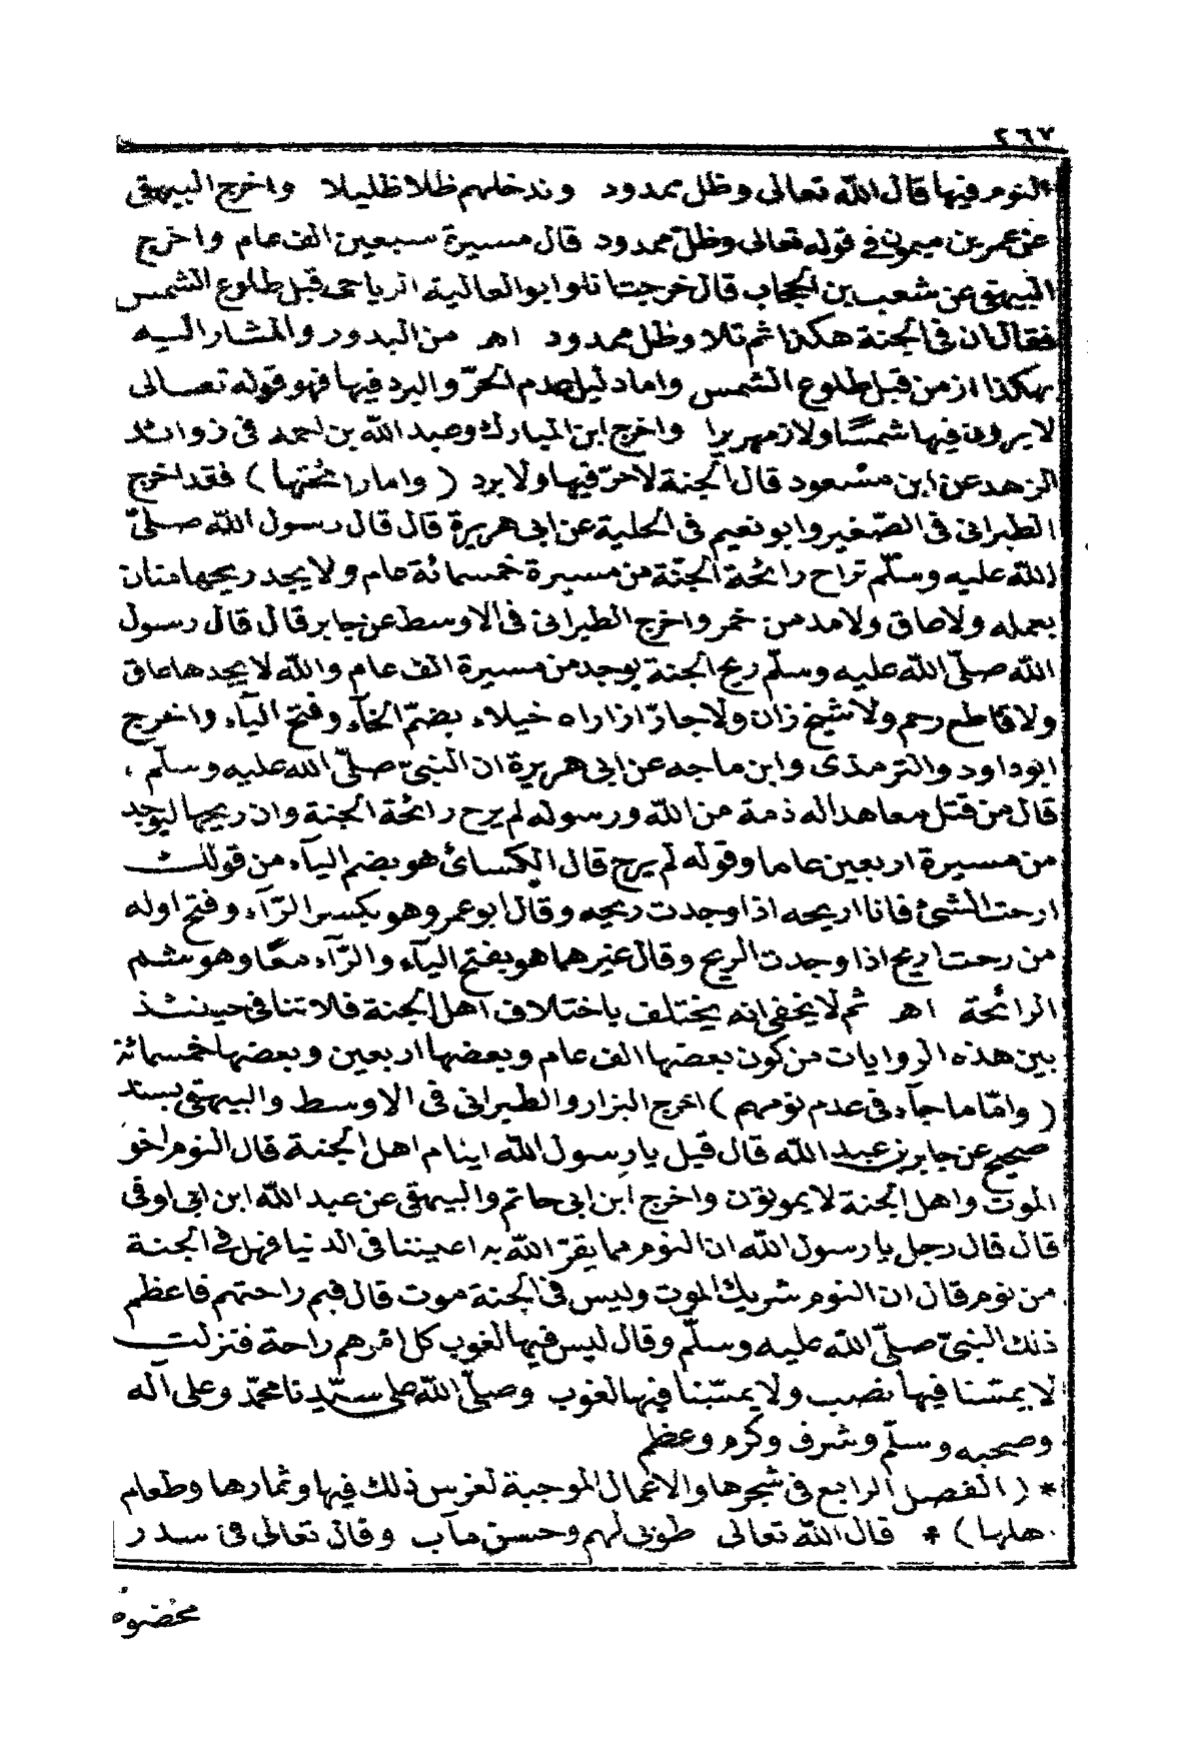 ٢٦٧
النوم فيها قال الله تعالى وظل ممدود وندخلهم ظلا ظليلا واخرج البيهقى
عن عمر بن ميمون فى قوله تعالى وظل ممدود قال مسيرة سبعين الف عام واخرج
البيهقى عن شعيب بن الحجاب قال خرجت انا وابو العالية الرياحى قبل طلوع الشمس
فقال ان فى الجنة هكذا ثم تلا وظل ممدود اهـ من البدور والمشار اليه
بهكذا از من قبل طلوع الشمس واما دليل عدم الحرّ والبرد فيها فهو قوله تعالى
لا يرون فيها شمسًا ولا زمهريرا واخرج ابن المبارك وعبد الله بن احمد فى زوائد
الزهد عن ابن مسعود قال الجنة لا حرّ فيها ولا برد ( واما رائحتها ) فقد اخرج
الطبرانى فى الصّغير وابو نعيم فى الحلية عن ابى هريرة قال قال رسول الله صلىّ
الله عليه وسلّم تراح رائحة الجنّة من مسيرة خمسمائة عام ولا يجد ريحها منان
بعمله ولا عاق ولا مدمن خمر واخرج الطبرانى فى الاوسط عن جابر قال قال رسول
الله صلّى الله عليه وسلّم ريح الجنة يوجد من مسيرة الف عام والله لا يجدها عاق
ولا قاطع رحم ولا شيخ زان ولا جارّ ازاراه خيلاء بضمّ الخآء وفتح اليآء واخرج
ابو داود والترمذى وابن ماجه عن ابى هريرة ان النبىّ صلىّ الله عليه وسلّم ،
قال من قتل معاهدا له ذمة من الله ورسوله لم يرح رائحة الجنة وان ريحها ليوجد
من مسيرة اربعين عاما وقوله لم يرح قال الكسائ هو بضم اليآء من قولك
ارحت الشئ فانا اريحه اذا وجدت ريحه وقال ابو عمرو هو بكسر الرّآء وفتح اوله
من رحت اريح اذا وجدت الريح وقال غيرهما هو بفتح اليآء والرّآء معًا وهو شم
الرائحة اهـ ثم لا يخفى انه يختلف باختلاف اهل الجنة فلا تنافى حينئذ
بين هذه الروايات من كون بعضها الف عام وبعضها اربعين وبعضها خمسمائة
( وامّا ما جآء فى عدم نومهم ) اخرج البزار والطبرانى فى الاوسط والبيهقى بسند
صحيح عن جابر بن عبد الله قال قيل يا رسول الله اينام اهل الجنة قال النوم اخو
الموت واهل الجنة لا يموتون واخرج ابن ابى حاتم والبيهقى عن عبد الله ابن ابى اوفى
قال قال رجل يا رسول الله ان النوم مما يقرّ الله به اعيننا فى الدنيا فهل فى الجنة
من نوم قال ان النوم شريك الموت وليس فى الجنة موت قال فبم راحتهم فاعظم
ذلك النبىّ صلىّ الله عليه وسلّم وقال ليس فيها لغوب كل امرهم راحة فنزلت
لا يمسّنا فيها نصب ولا يمسّنا فيها لغوب وصلىّ الله على سيّدنا محمّد وعلى آله
وصحبه وسلّم وشرف وكرم وعظم
* ( الفصل الرابع فى شجرها والاعمال الموجبة لغرس ذلك فيها وثمارها وطعام
هلها ) * قال الله تعالى طوبى لهم وحسن مآب وقال تعالى فى سدر
مخضود